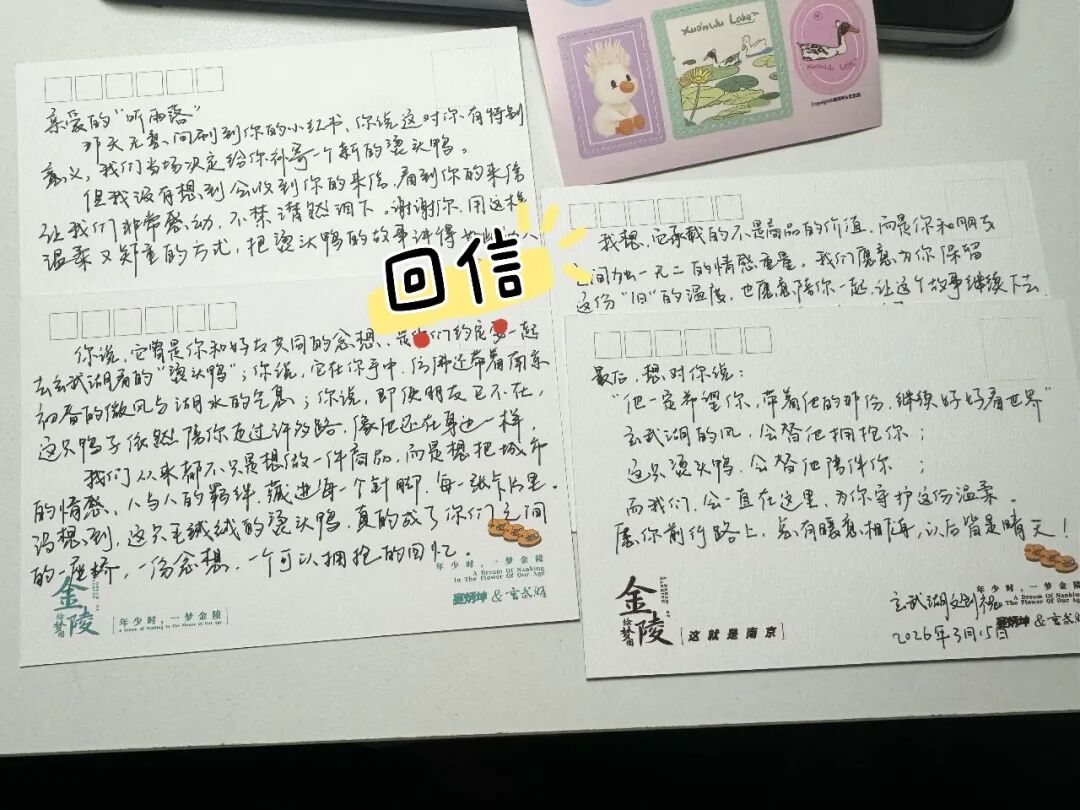 亲爱的“听雨落”
那天无意间刷到你的小红书,你说这对你有特别
意义,我们当场决定给你补寄一个新的烫头鸭。
但我没有想到会收到你的来信,看到你的来信
让我们非常感动,不禁潸然泪下。谢谢你,用这样
温柔又郑重的方式,把烫头鸭的故事讲得
回信
你说,它曾是你和好友共同的念想,是你们约定要一起
去玄武湖看的“烫头鸭”;你说,它在你手中,仿佛还带着南京
初春的微风与湖水的气息;你说,即使朋友已不在,
这只鸭子依然陪你走过许多路,像他还在身边一样,
我们从来都不只是想做一件商品,而是想把城市
的情感,人与人的羁绊,藏进每一个针脚,每一张卡片里。
没想到,这只毛绒绒的烫头鸭,真的成了你们之间
的一座桥,一份念想,一个可以拥抱的回忆。
金陵
绘梦留
年少时,一梦金陵
A Dream Of Nanking In The Flower Of Our Age
年少时,一梦金陵
A Dream Of Nanking
In The Flower Of Our Age
&玄武湖
XuanWu Lake
XuanWu Lake
我想,它承载的不是商品的价值,而是你和朋友
之间独一无二的情感重量,我们愿意为你保留
这份“旧”的温度,也愿意陪你一起,让这个故事继续下去。
最后,想对你说:
“他一定希望你,带着他的那份,继续好好看世界”
玄武湖的风,会替他拥抱你;
这只烫头鸭,会替他陪伴你;
而我们,会一直在这里,为你守护这份温柔。
愿你前行路上,总有暖意相随,以后皆是晴天!
金陵
绘梦留
这就是南京
年少时,一梦金陵
A Dream Of Nanking
In The Flower Of Our Age
&玄武湖
玄武湖文创
2026年3月15日